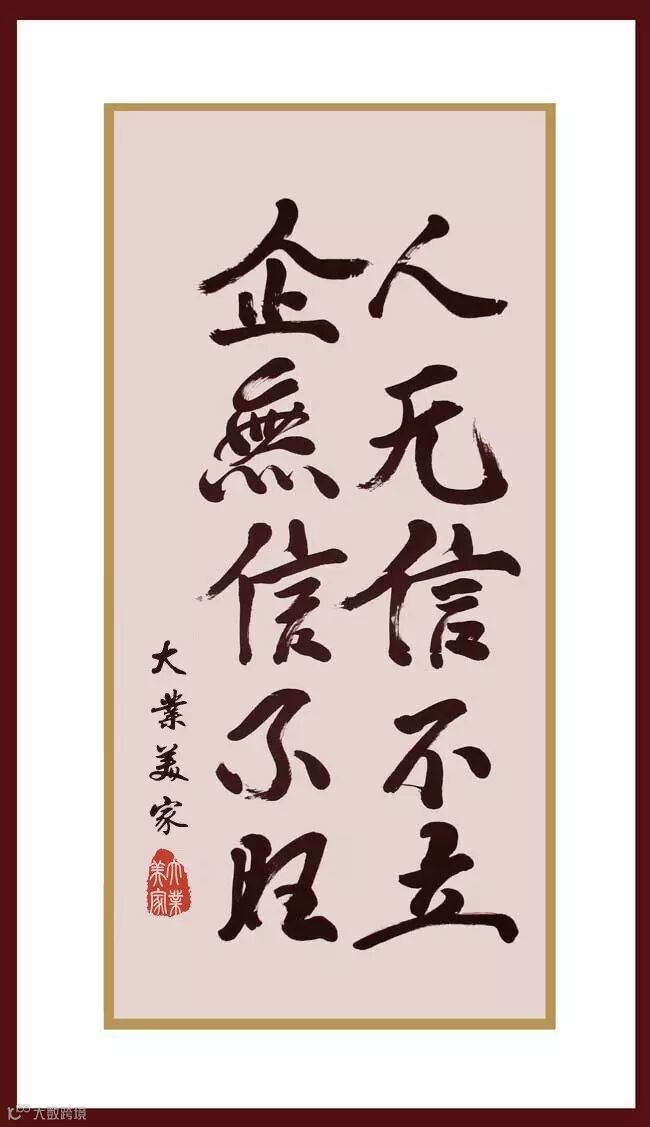 人无信不立
企無信不旺
大業美家
大業美家
大数跨境